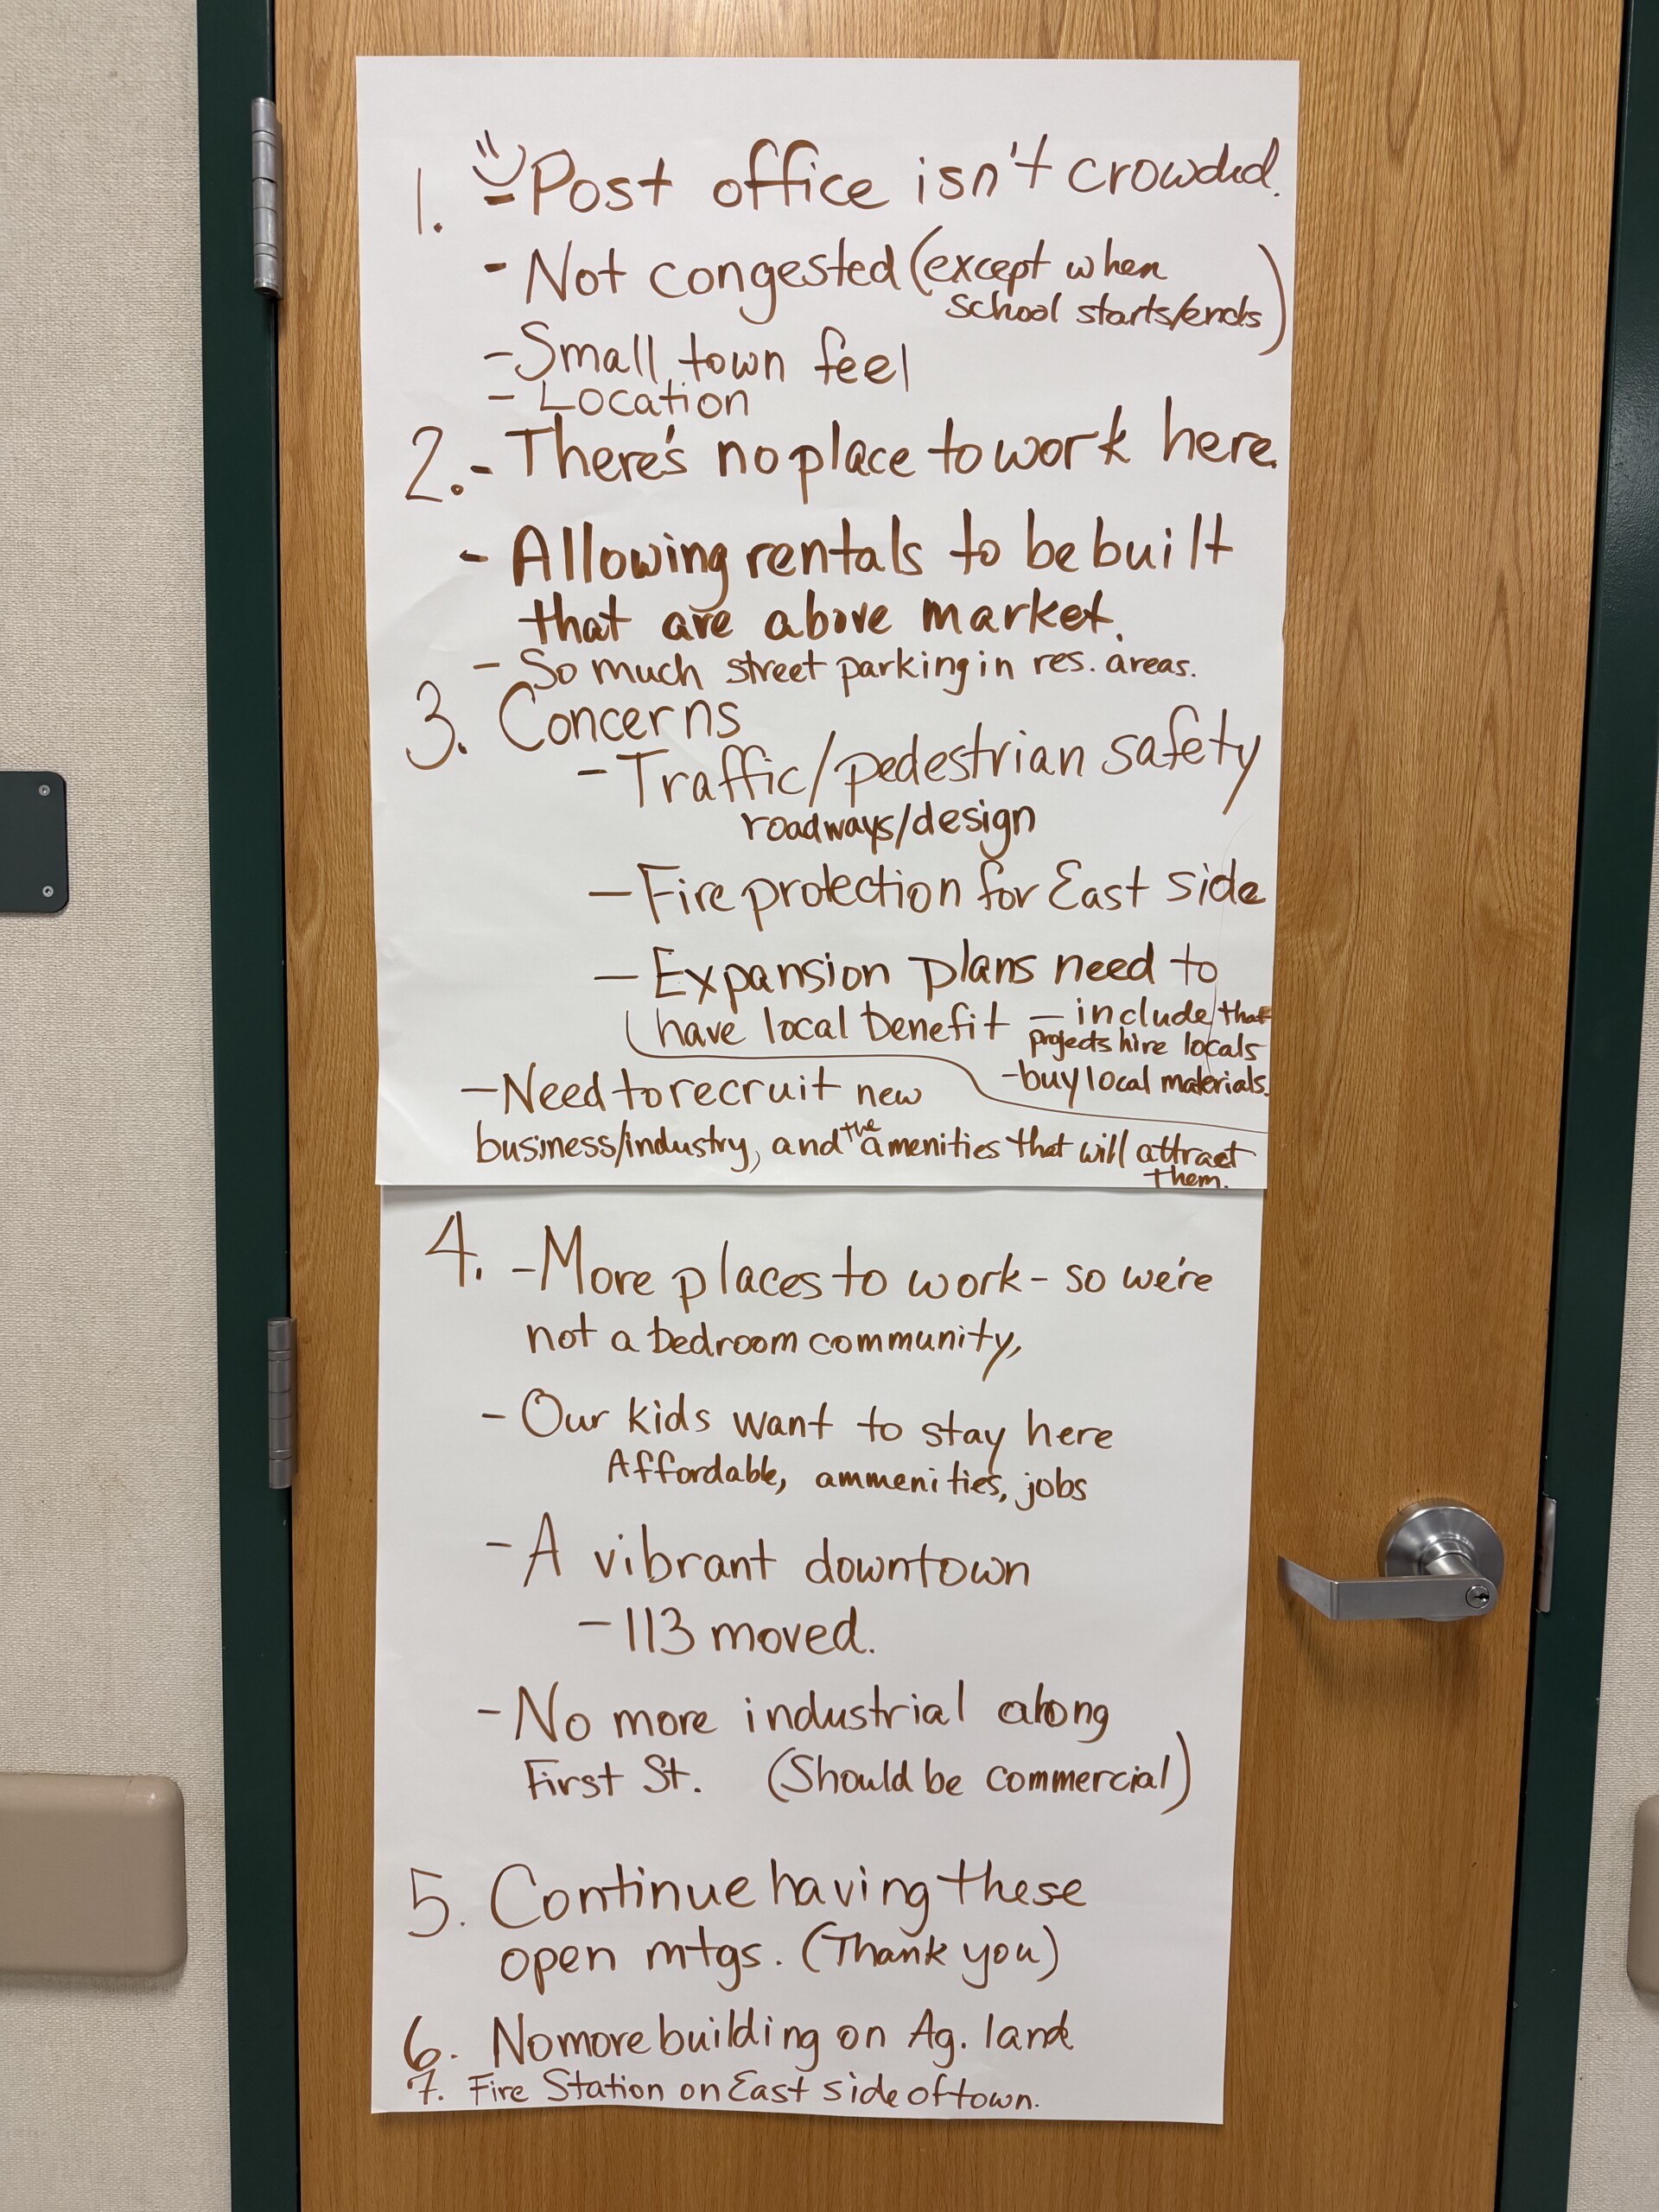 1. - Post office isn't crowded.
- Not congested (except when
school starts/ends)
- Small town feel
- Location
2. - There's no place to work here.
- Allowing rentals to be built
that are above market.
- So much street parking in res. areas.
3. Concerns
- Traffic/pedestrian safety
roadways/design
- Fire protection for East side
- Expansion plans need to
have local benefit - include that
projects hire locals
- buy local materials.
- Need to recruit new
business/industry, and the amenities that will attract
them.
4. - More places to work - so we're
not a bedroom community,
- Our kids want to stay here
Affordable, ammenities, jobs
- A vibrant downtown
- 113 moved.
- No more industrial along
First St. (Should be commercial)
5. Continue having these
open mtgs. (Thank you)
6. No more building on Ag. land
7. Fire Station on East side of town.